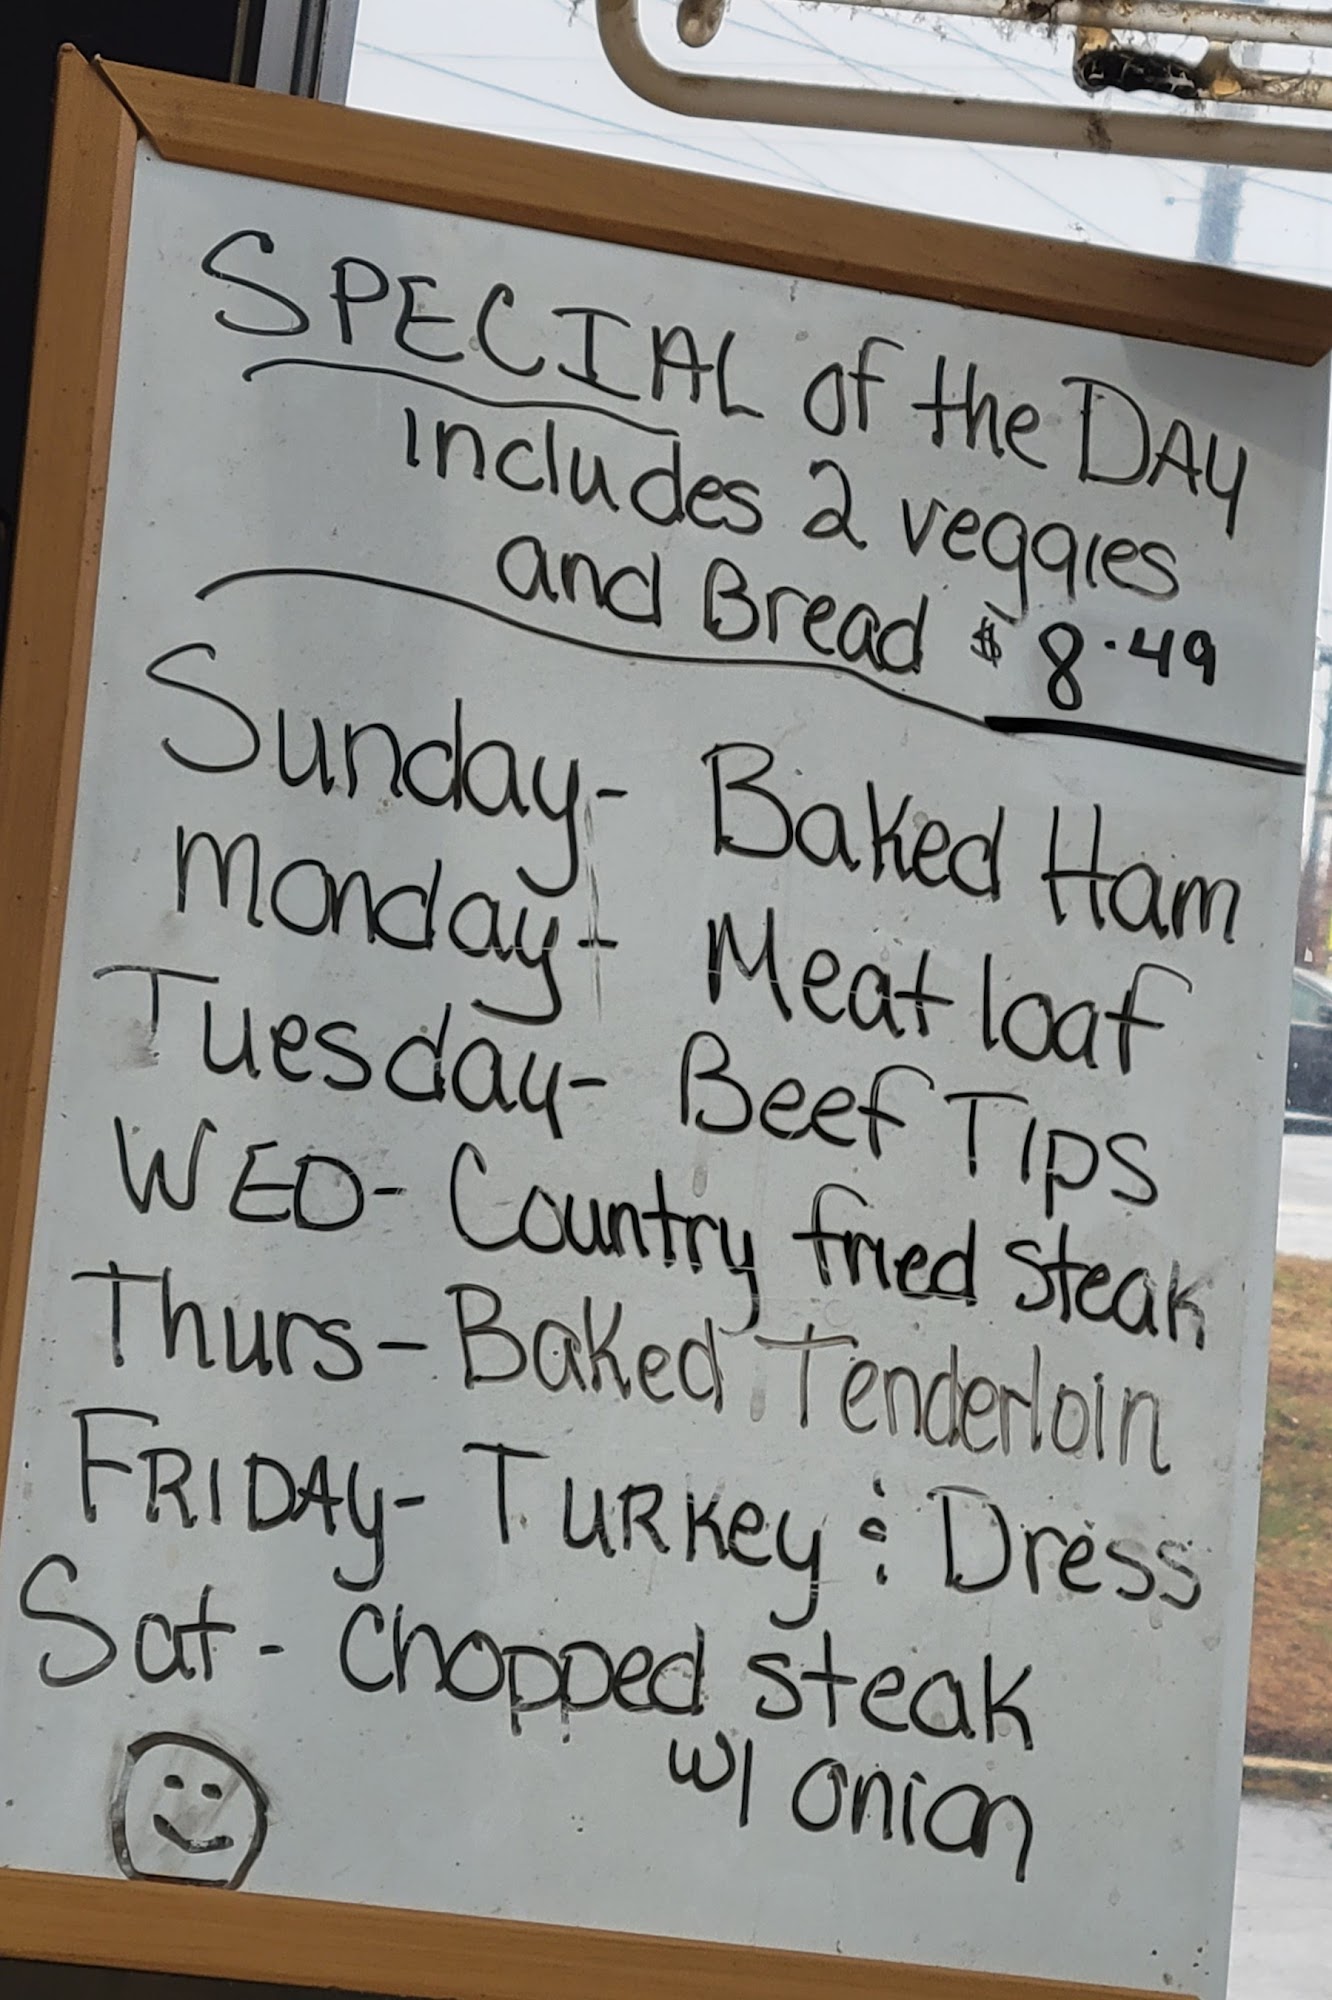 SPECIAL of the DAY
Includes 2 veggies
and Bread $8.49
Sunday- Baked Ham
Monday- Meatloaf
Tuesday- Beef Tips
WED- Country fried steak
Thurs- Baked Tenderloin
FRIDAY- Turkey & Dress
Sat- Chopped steak
w/ onion